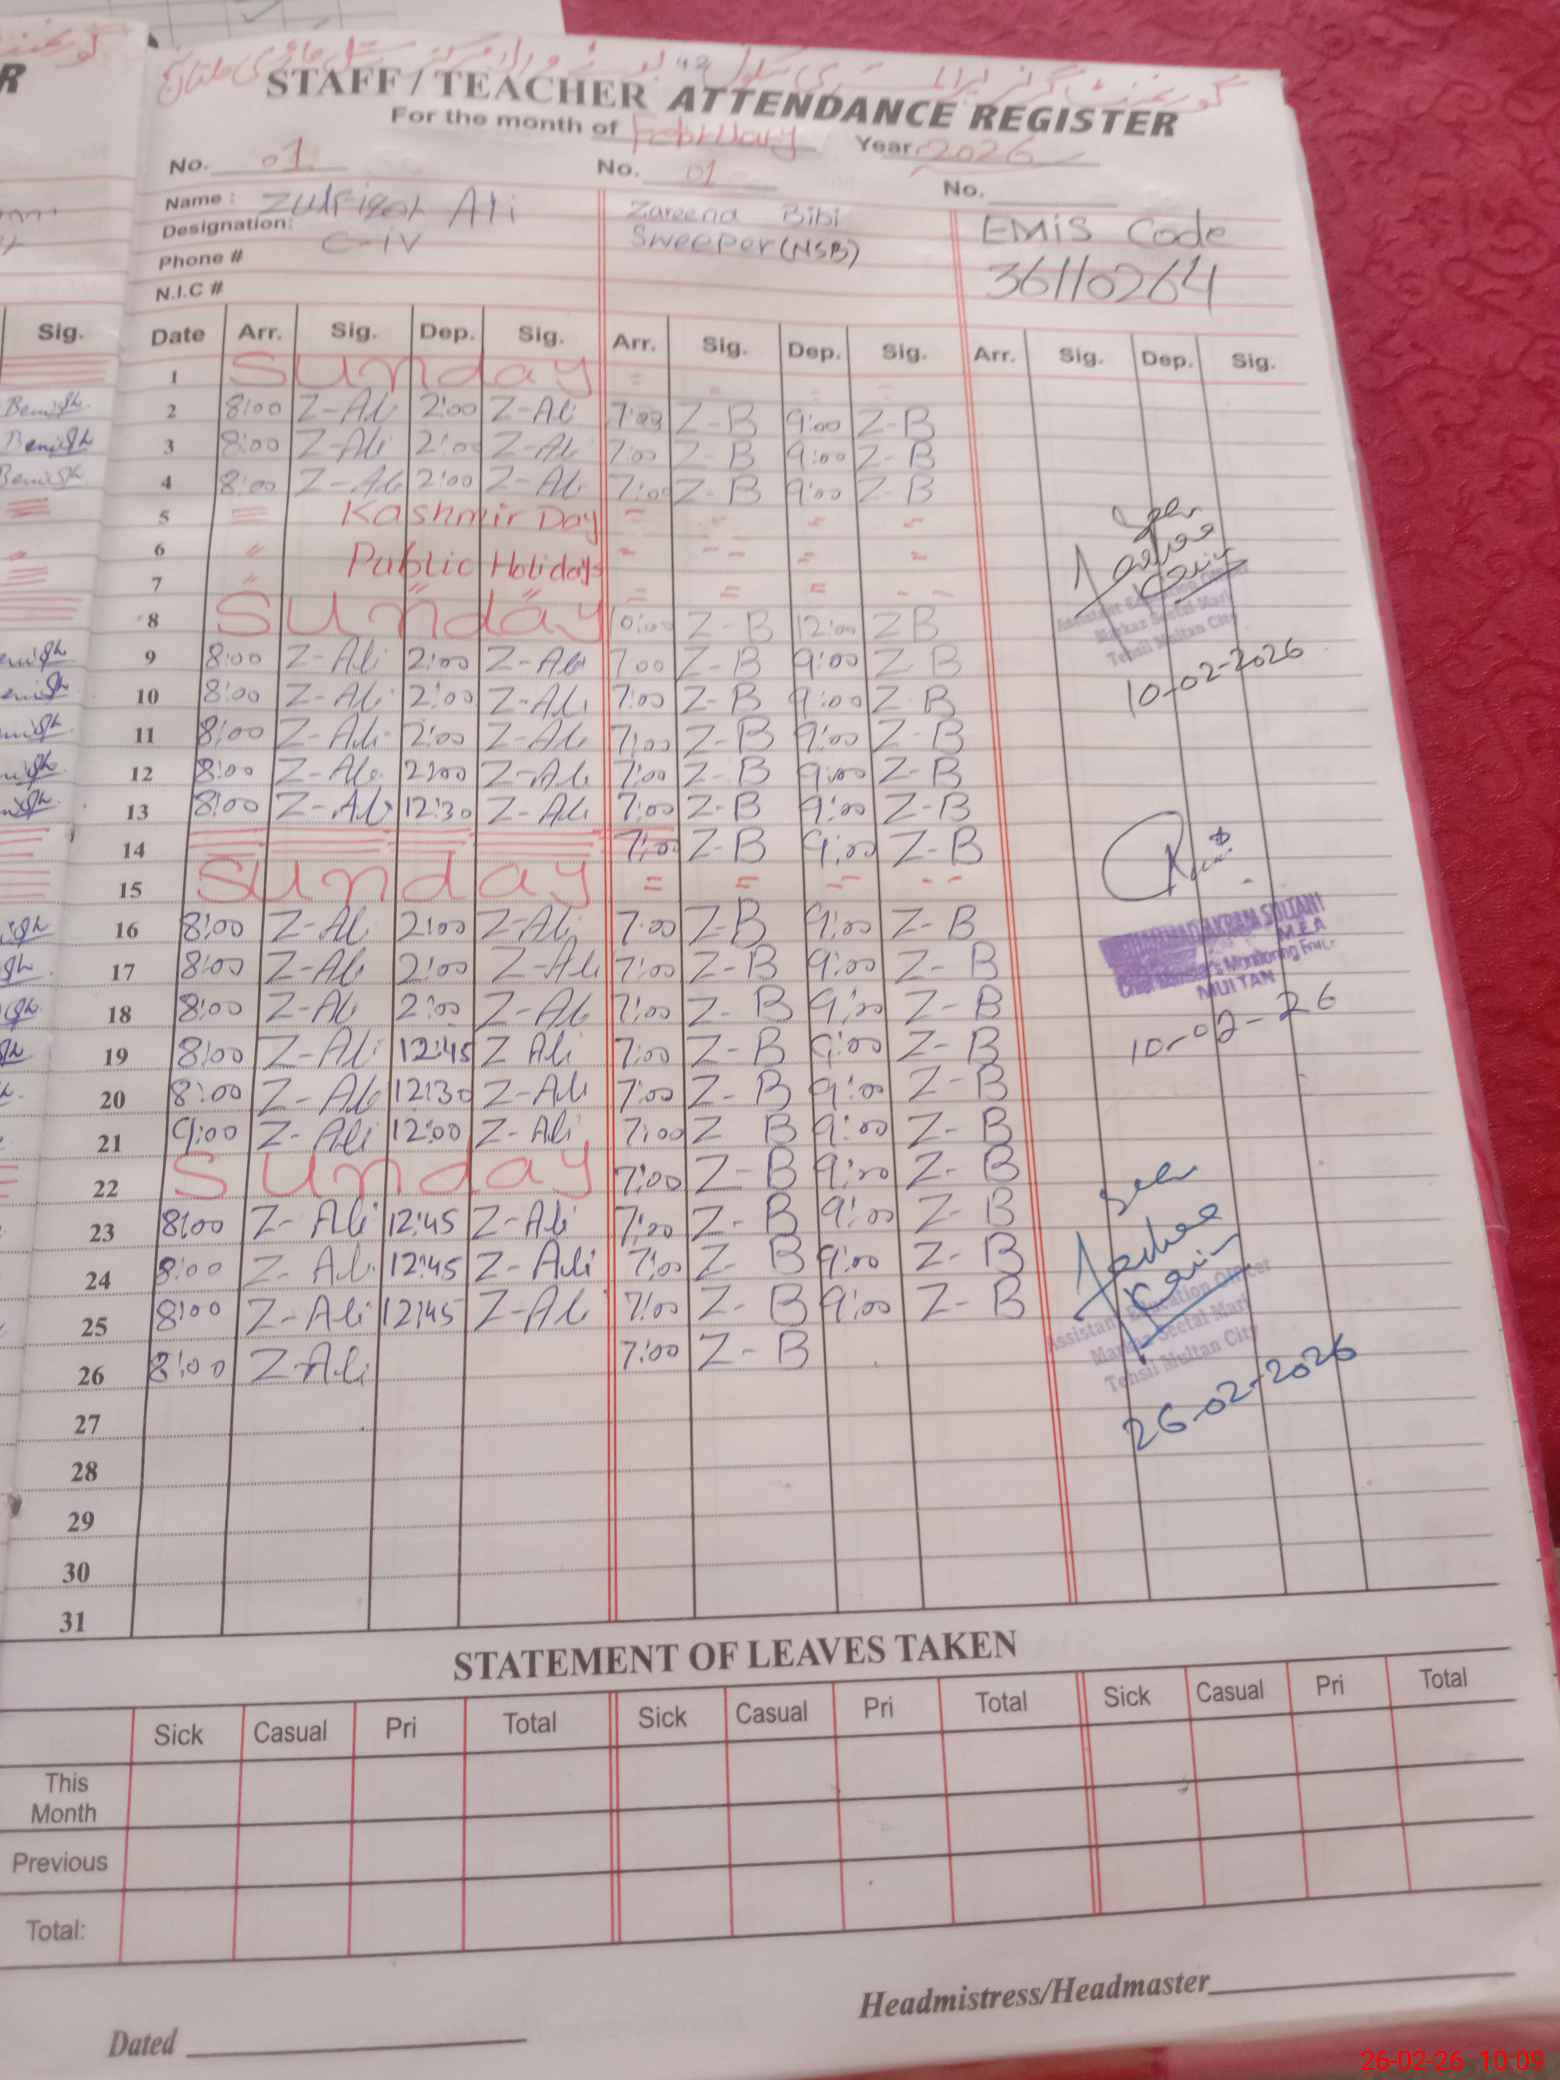 STAFF / TEACHER ATTENDANCE REGISTER
For the month of February Year 2026
No. 01 No. 01 No.
Name : Zulfiqar Ali Zareena Bibi EMiS Code
Designation: C-iV Sweeper (NSB) 36110264
Phone #
N.I.C #
Sig. Date Arr. Sig. Dep. Sig. Arr. Sig. Dep. Sig. Arr. Sig. Dep. Sig.
1 Sunday
2 8:00 Z-Ali 2:00 Z-Ali 7:00 Z-B 9:00 Z-B
3 8:00 Z-Ali 2:00 Z-Ali 7:00 Z-B 9:00 Z-B
4 8:00 Z-Ali 2:00 Z-Ali 7:00 Z-B 9:00 Z-B
5 Kashmir Day
6 Public Holidays
7
8 Sunday 10:00 Z-B 12:00 ZB
9 8:00 Z-Ali 2:00 Z-Ali 7:00 Z-B 9:00 Z-B
10 8:00 Z-Ali 2:00 Z-Ali 7:00 Z-B 9:00 Z-B
11 8:00 Z-Ali 2:00 Z-Ali 7:00 Z-B 9:00 Z-B
12 8:00 Z-Ali 2:00 Z-Ali 7:00 Z-B 9:00 Z-B
13 8:00 Z-Ali 12:30 Z-Ali 7:00 Z-B 9:00 Z-B
14 7:00 Z-B 9:00 Z-B
15 Sunday
16 8:00 Z-Ali 2:00 Z-Ali 7:00 Z-B 9:00 Z-B
17 8:00 Z-Ali 2:00 Z-Ali 7:00 Z-B 9:00 Z-B
18 8:00 Z-Ali 2:00 Z-Ali 7:00 Z-B 9:00 Z-B
19 8:00 Z-Ali 12:45 Z Ali 7:00 Z-B 9:00 Z-B
20 8:00 Z-Ali 12:30 Z-Ali 7:00 Z-B 9:00 Z-B
21 9:00 Z-Ali 12:00 Z-Ali 7:00 Z B 9:00 Z-B
22 Sunday 7:00 Z-B 9:00 Z-B
23 8:00 Z-Ali 12:45 Z-Ali 7:00 Z-B 9:00 Z-B
24 8:00 Z-Ali 12:45 Z-Ali 7:00 Z-B 9:00 Z-B
25 8:00 Z-Ali 12:45 Z-Ali 7:00 Z-B 9:00 Z-B
26 8:00 Z-Ali 7:00 Z-B
27
28
29
30
31
Seen
Tehsil Multan City
10-02-2026
MULTAN
10-02-26
Seen
Assistant Education Officer
Tehsil Multan City
26-02-2026
STATEMENT OF LEAVES TAKEN
Sick Casual Pri Total Sick Casual Pri Total Sick Casual Pri Total
This Month
Previous
Total:
Headmistress/Headmaster
Dated
26-02-26 10:09